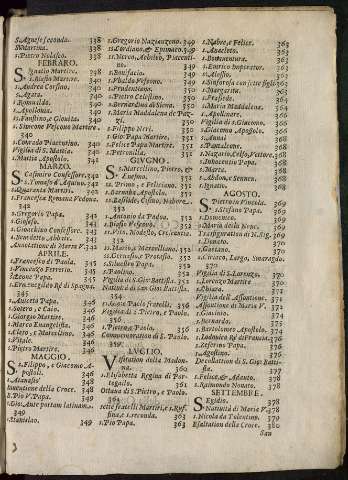 S. Agnese seconda. 338
S. Martina. 338
S. Pietro Nolasco. 338
FEBRARO.
S. Ignatio Martire. 338
S. Andrea Corsino. 340
S. Agata. 340
S. Romualdo. 340
S. Apollonia. 340
S. Faustino, e Giovita. 340
S. Simeone Vescovo Martire. 340
S. Corrado Piacentino. 340
Vigilia di S. Mattia. 341
S. Mattia Apostolo. 341
MARZO.
S. Casimiro Confessore. 340
S. Tomaso d'Aquino. 341
S. Quaranta Martiri. 341
S. Francesca Romana Vedova. 342
S. Gregorio Papa. 341
S. Gioseffo. 345
S. Gioachino Confessore. 345
S. Benedetto Abbate. 343
Annontiatione di Maria V.
APRILE.
S. Francesco di Paola. 345
S. Vincenzo Ferrerio. 345
S. Leone Papa. 345
S. Aniceto Papa. 346
S. Sotero, e Caio. 346
S. Giorgio Martire. 346
S. Marco Evangelista. 346
S. Cleto, e Marcellino. 346
S. Vitale. 346
S. Pietro Martire. 346
MAGGIO.
S. Filippo, e Giacomo Apostoli. 346
S. Atanasio. 348
Inventione della Croce. 348
S. Pio V. Papa. 349
S. Gio: Ante portam latinam.
S. Stanislao. 349
S. Gregorio Nazianzeno. 349
S. Gordiano, & Epimaco. 349
S. Bonifacio. 349
S. Ubaldo Vescovo. 349
S. Pudentiana. 350
S. Pietro Celestino. 350
S. Bernardino di Siena. 350
S. Maria Maddalena de Pazzi. 351
S. Filippo Neri. 351
S. Gio: Papa Martire. 351
S. Felice Papa Martire. 351
S. Petronilla. 351
GIUGNO.
S. Marcellino, Pietro, & Erasmo. 351
SS. Primo, e Feliciano. 351
S. Barnaba Apostolo. 351
S. Antonio da Padoa. 353
S. Basilio Vescovo. 353
SS. Vito, Modesto, e Crescentia.
SS. Marco, e Marcelliano. 353
SS. Gervasio, e Protasio. 353
S. Silverio Papa. 353
S. Paolino. 353
Vigilia di S. Gio: Battista. 353
354
S. Gio: e Paolo fratelli. 356
Vigilia di S. Pietro, e Paolo. 356
S. Pietro, e Paolo. 356
Commemoratione di S. Paolo.
LUGLIO.
Visitatione della Madonna. 360
S. Elisabetta Regina di Portogallo. 361
Ottava di S. Pietro, e Paolo. 361
Sette fratelli Martiri, e S. Ruffina, e seconda. 363
S. Pio Papa. 363
S. Nabore, e Felice. 363
S. Anacleto. 363
S. Bonaventura. 363
S. Enrico Imperator. 363
S. Alessio. 363
S. Sinforosa con sette figli. 363
S. Margarita. 363
S. Prassede. 363
S. Maria Maddalena. 363
S. Apollinare. 364
Vigilia di S. Giacomo. 364
S. Giacomo Apostolo. 364
S. Anna. 365
S. Pantaleone. 365
S. Nazario, Celso, Vittore. 365
S. Innocentio Papa. 365
S. Marta. 365
S. Abdon, e Sennen. 365
S. Ignatio. 365
AGOSTO.
S. Pietro in Vincola. 369
S. Stefano Papa. 369
S. Domenico. 369
S. Maria della Neve. 369
Transfiguratione di N. Sig. 369
S. Donato. 370
S. Gaetano. 370
S. Ciriaco, Largo, Smaragdo. 370
Vigilia di S. Lorenzo. 370
S. Lorenzo Martire. 370
S. Chiara. 370
Vigilia dell'Assontione. 371
Assontione di Maria V. 371
S. Giacinto. 371
S. Bernardo. 374
S. Bartolomeo Apostolo. 374
S. Lodovico Rè di Francia. 376
S. Zeferino Papa. 376
S. Agostino. 376
Decollatione di S. Gio: Battista. 376
S. Felice, & Adauto. 378
S. Raimondo Nonato. 378
SETTEMBRE.
S. Egidio. 378
Natività di Maria V. 378
S. Nicola da Tolentino. 379
Esaltatione della Croce. 380
San